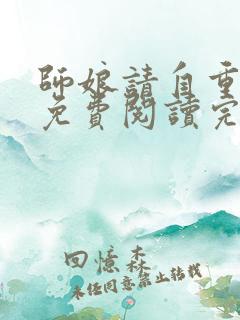 師娘請自重
免費閱讀完
回憶森
未經同意禁止轉載